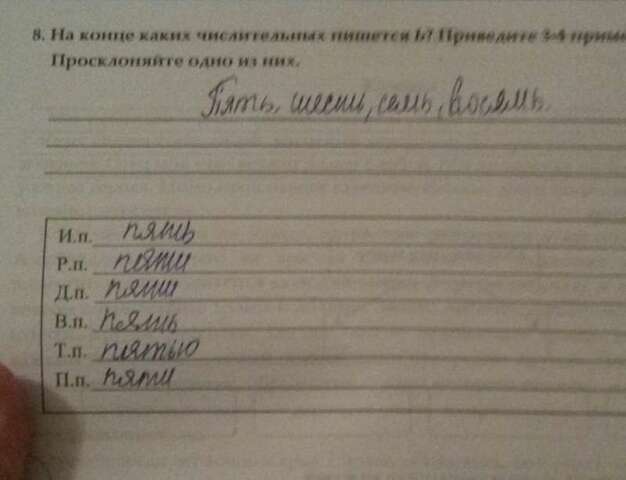 8. На конце каких числительных пишется Ь? Приведите 3-4 приме
Просклоняйте одно из них.
Пять, шесть, семь, восямь.
И.п. пять
Р.п. пяти
Д.п. пяти
В.п. пять
Т.п. пятью
П.п. пяти